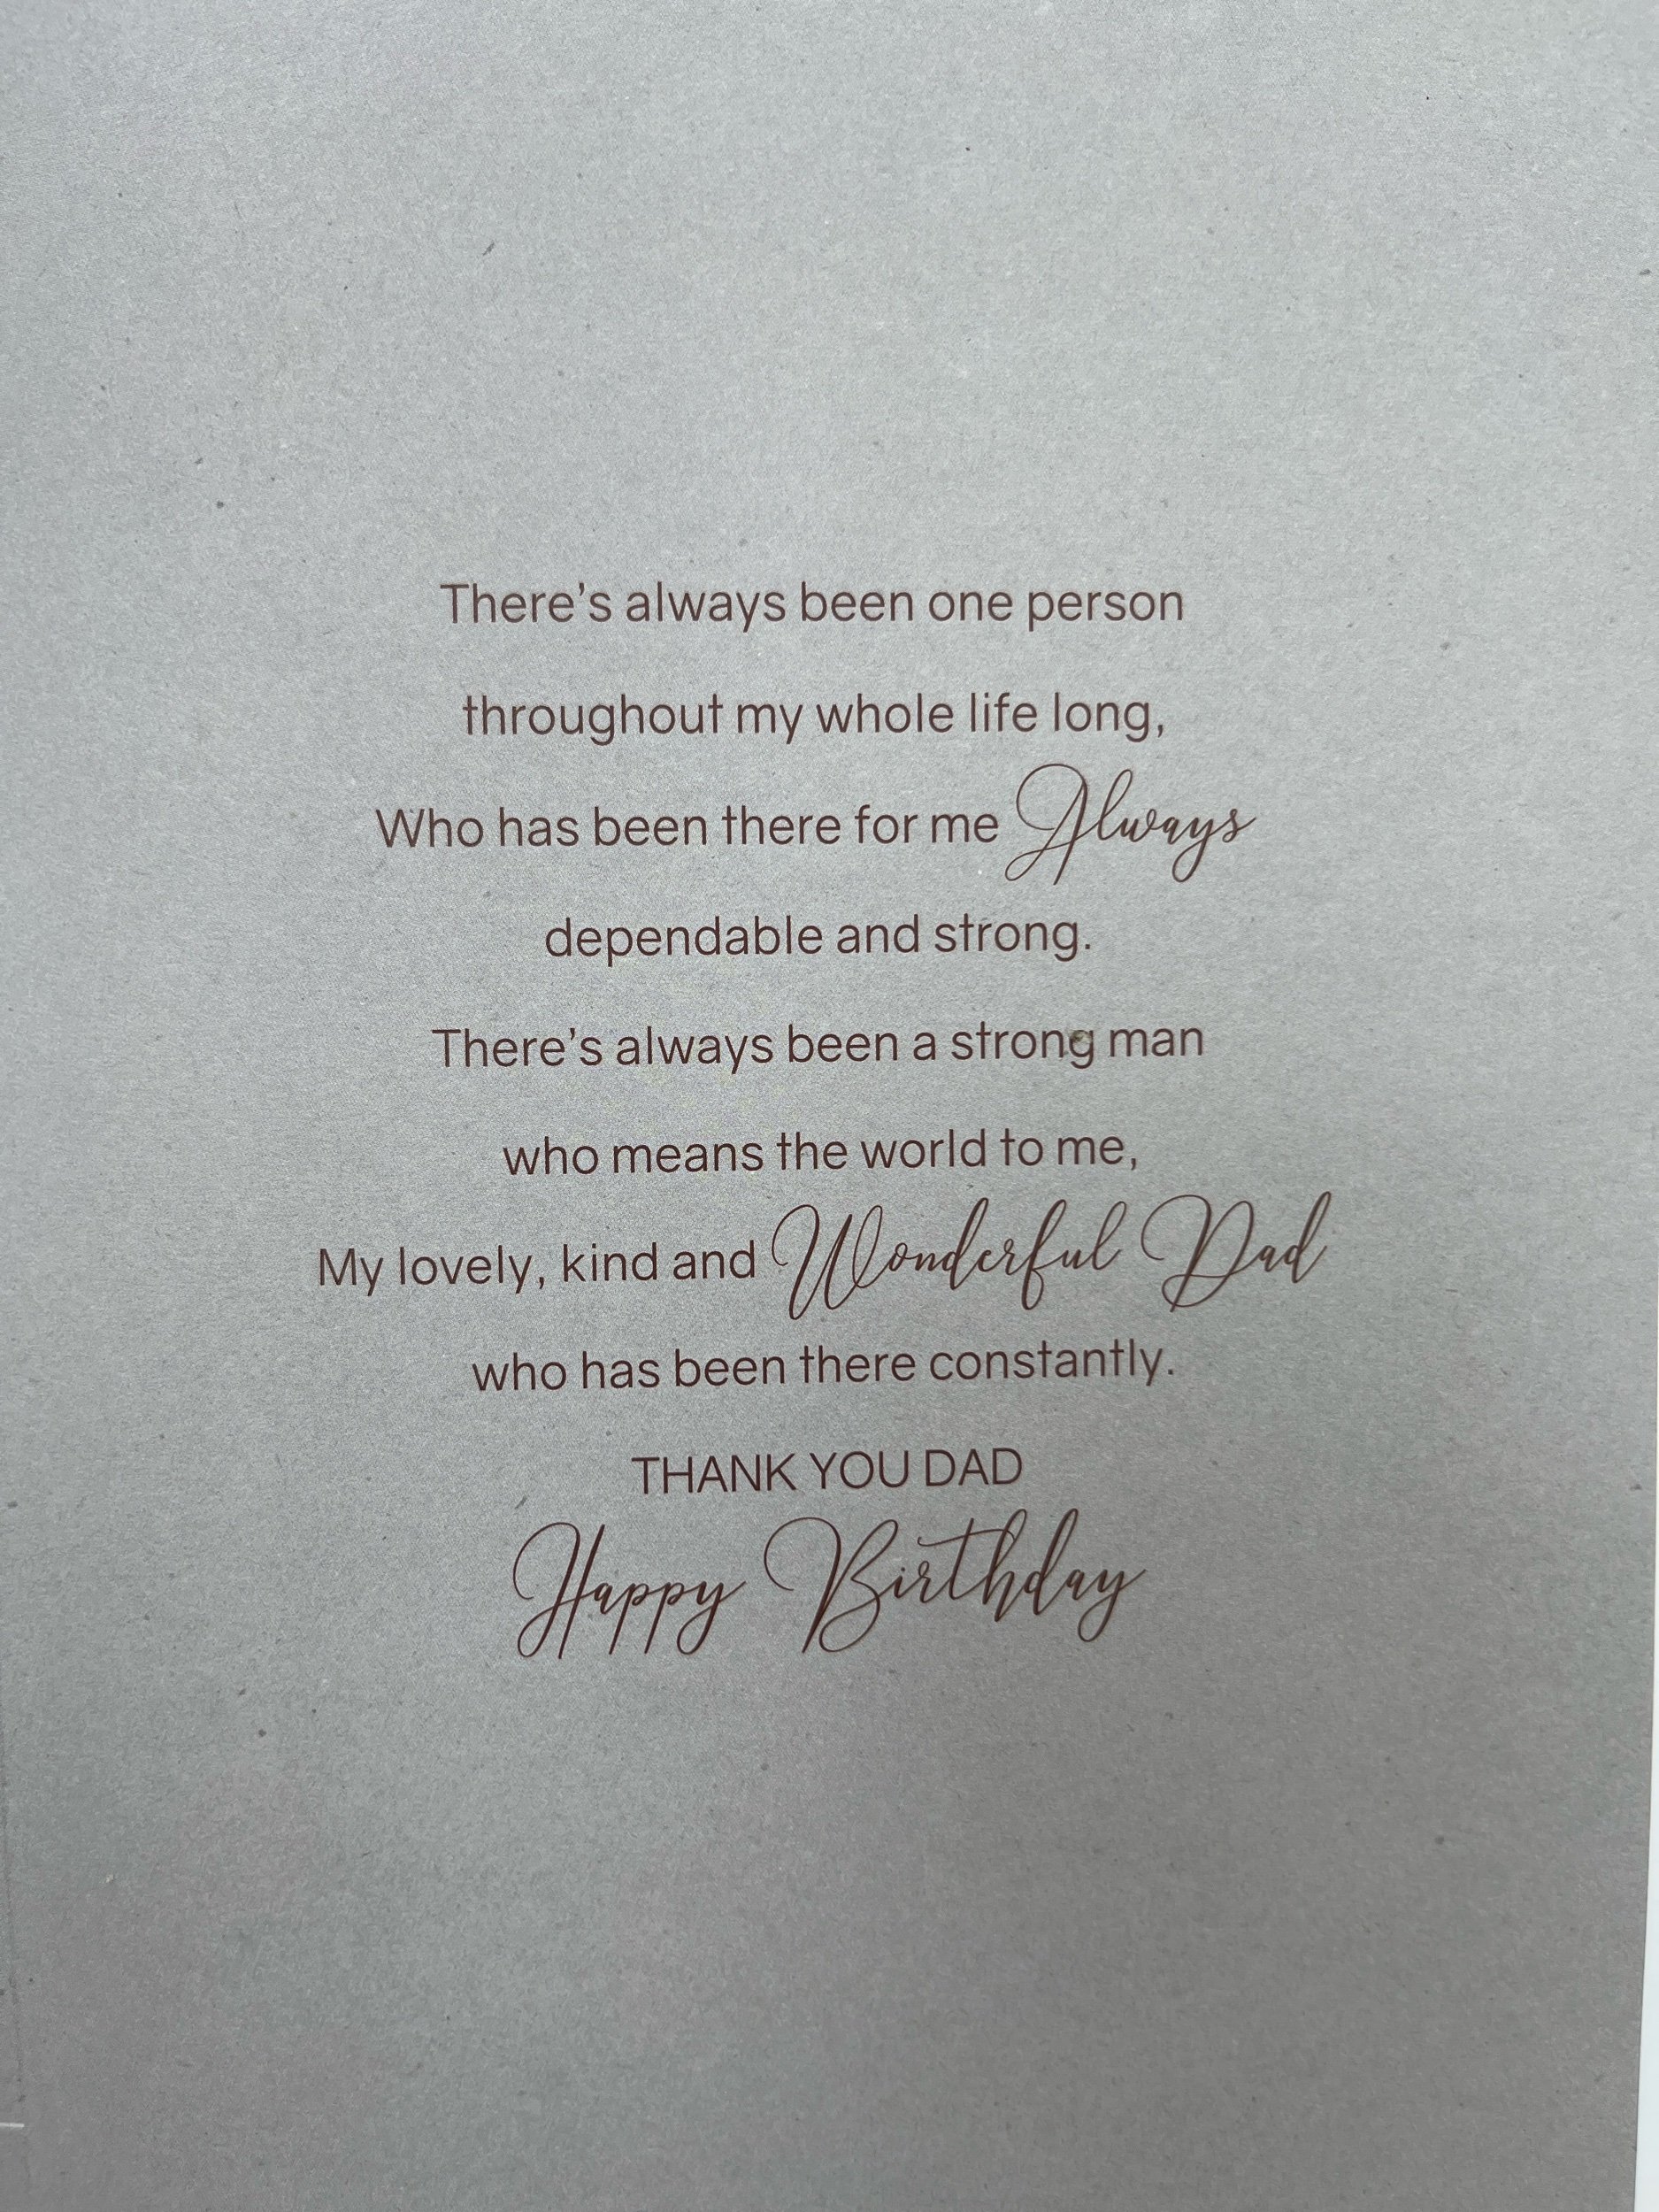 There’s always been one person
throughout my whole life long,
Who has been there for me Always
dependable and strong.
There’s always been a strong man
who means the world to me,
My lovely, kind and Wonderful Dad
who has been there constantly.
THANK YOU DAD
Happy Birthday